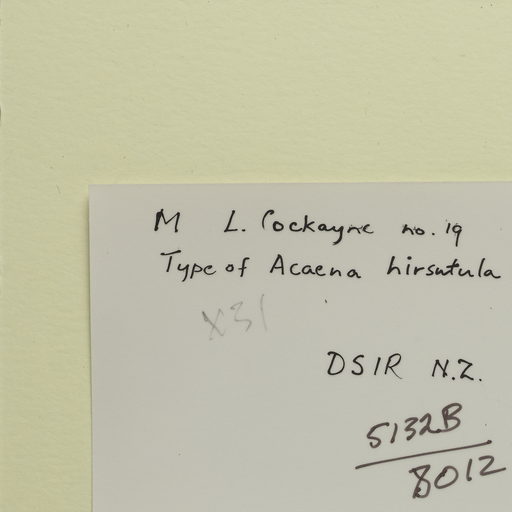 M L. Cockayne no. 19
Type of Acaena hirsutula
X31
DSIR N.Z.
5132B
8012